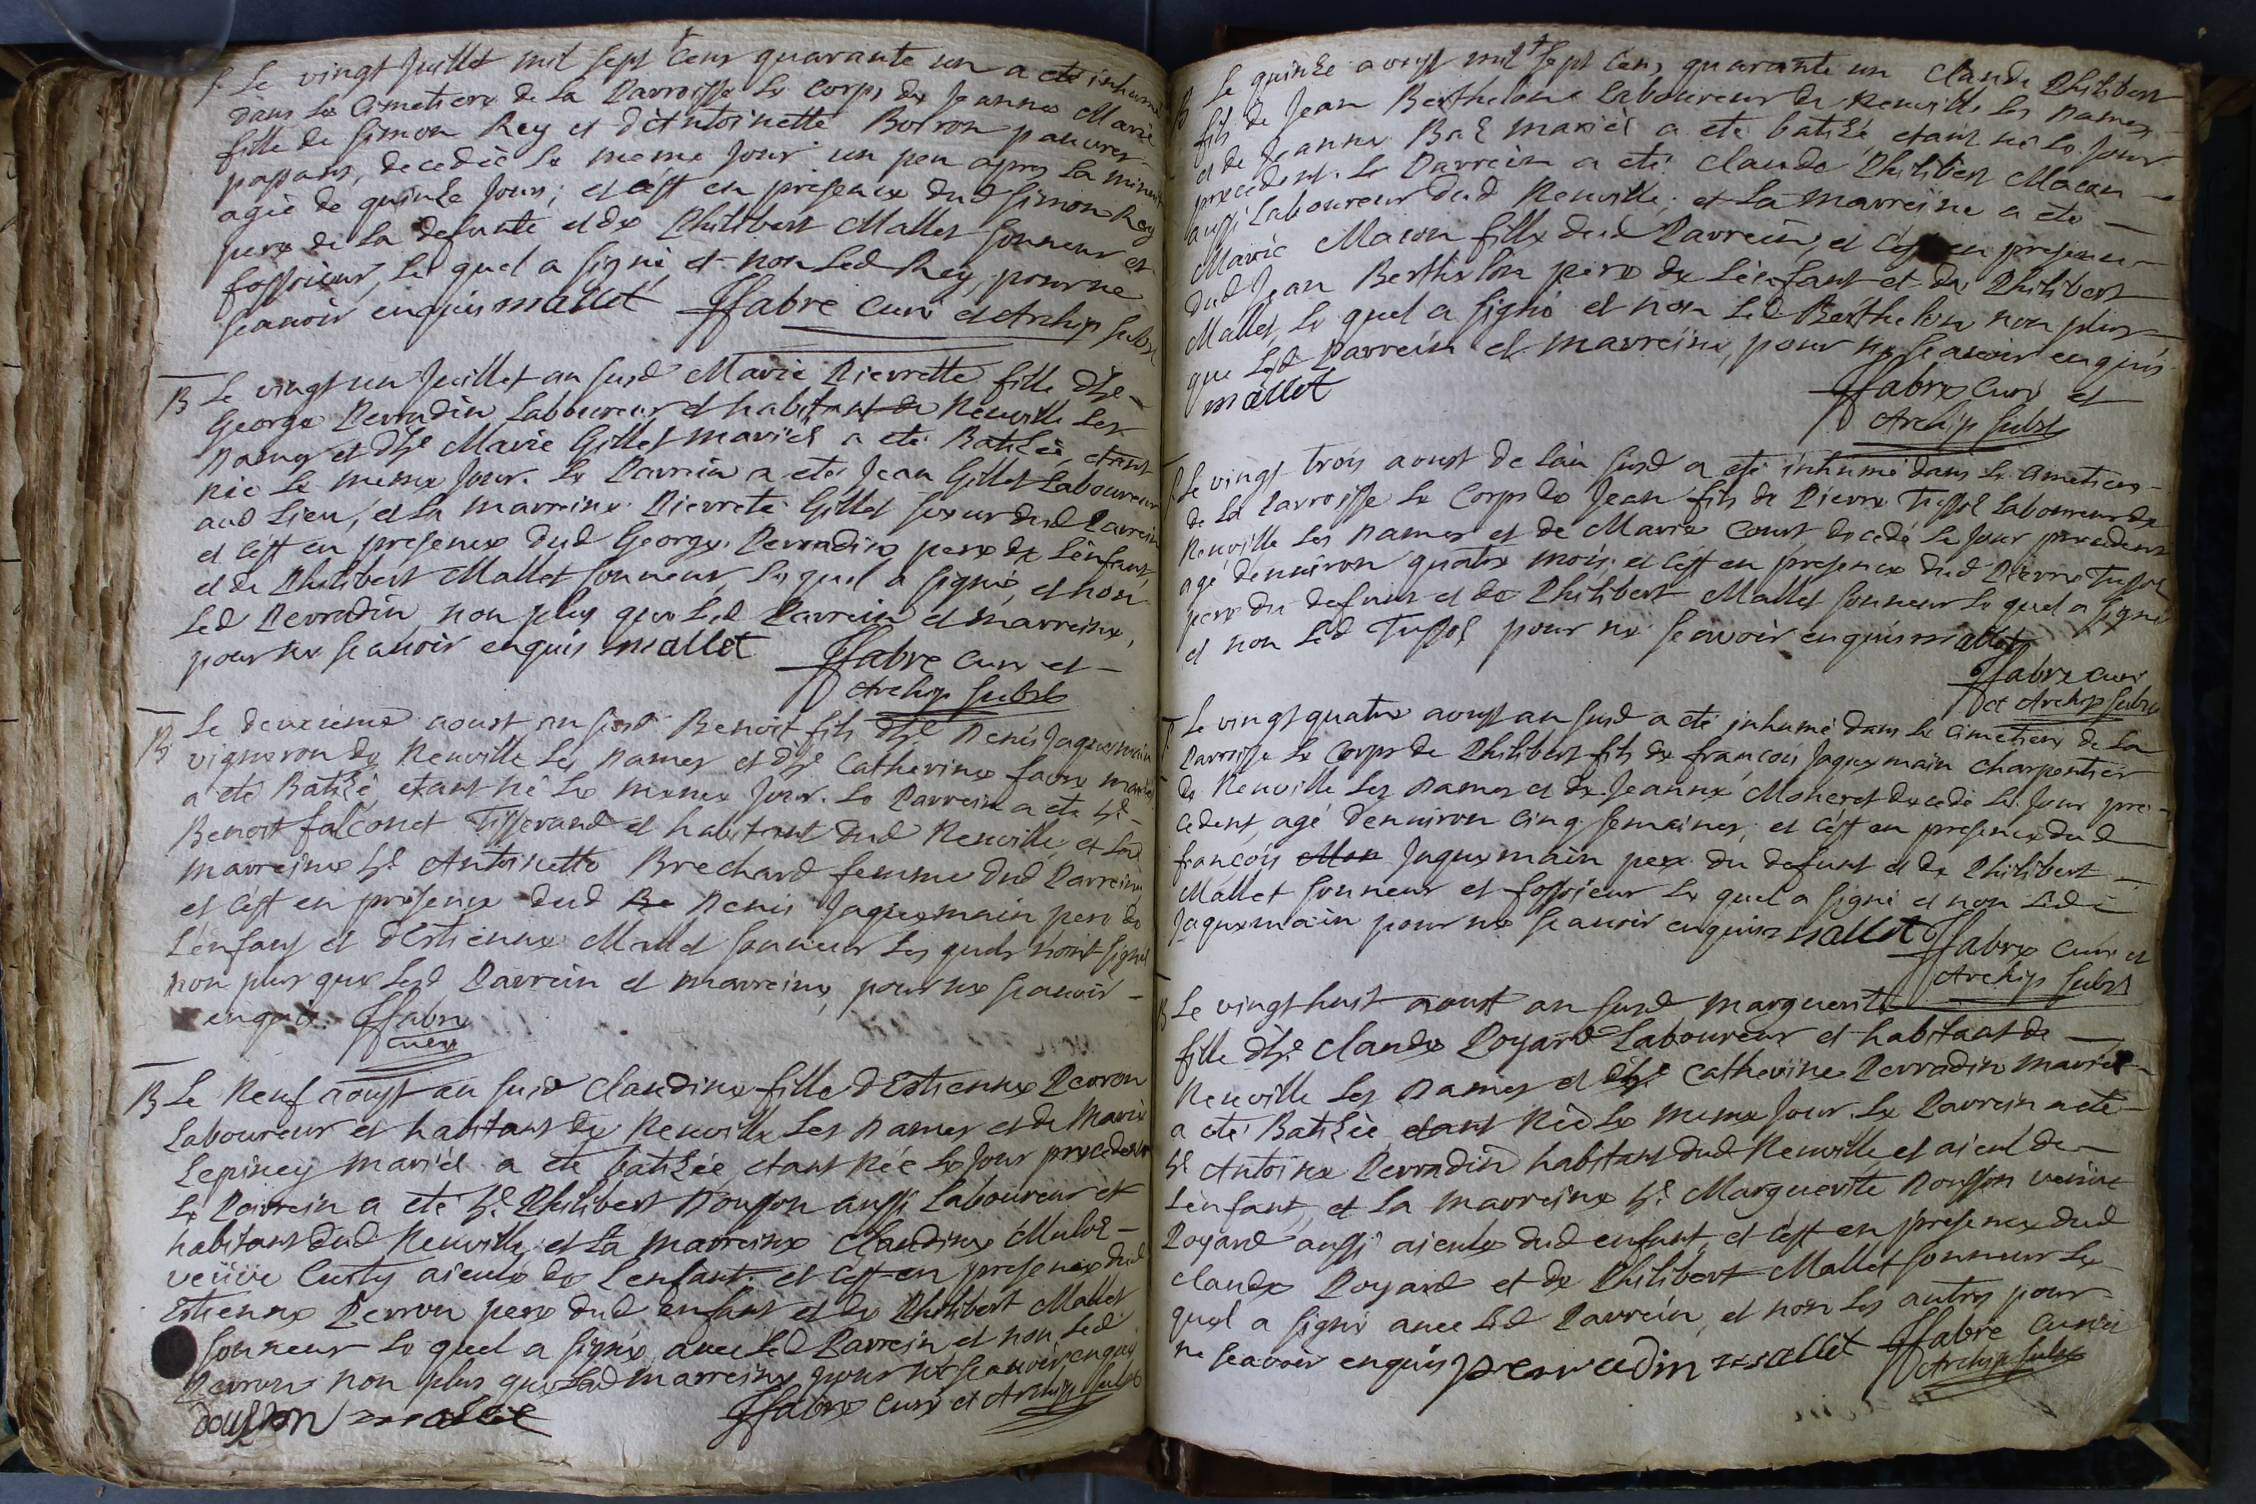 S. Le vingt Juillet mil sept cens quarante un a eté inhumé
dans le Cimetiere de la Parroisse le corps de Jeanne Marie
fille de Simon Rey et d'Antoinette Borron pauvres
passans, decedée le meme jour un peu apres la minuit
agée de quinze jours; et c'est en presence dud Simon Rey
pere de la defunte et de Philibert Mallet sonneur et
fossoieur, le quel a signé et non led Rey, pour ne
scavoir enquis mallet JFabre curé et Archip subst
B Le vingt un Juillet an susd Marie Pierrette fille d'hle
George Perradin Laboureur et habitant de Neuville Les
Dames et d'hle Marie Gillet mariés a eté Batisée, etant
née le meme jour. Le Parrein a eté Jean Gillet Laboureur
aud Lieu, et la marreine Pierrete Gillet soeur dud Parrein
et c'est en presence dud George Perradin pere de L'enfant
et de Philibert Mallet sonneur, le quel a signé, et non
Led Perradin non plus que Led Parrein et marreine,
pour ne scavoir enquis mallet JFabre curé et
Archip subst
B Le deuxieme aoust an susd Benoit fils d'hle Denis Jaquemain
vigneron de Neuville Les Dames et d'hle Catherine favre mariés
a eté Batisé etant né le meme jour. Le Parrein a eté hle
Benoit falconet Tisserand et habitant dud Neuville, et La
marreine hle Antoinette Brechard femme dud Parrein
et c'est en presence dud Be Denis Jaquemain pere de
L'enfant et d'Estienne Mallet sonneur Les quels n'ont signé
non plus que Lesd Parrein et marreine, pour ne scavoir
enquis JFabre
curé
B Le Neuf aoust an susd Claudine fille d'Estienne Perron
Laboureur et habitant de Neuville Les Dames et de Marie
Lepiney mariés a eté batisée etant née le jour precedent
Le Parrein a eté hle Philibert Dousson aussi Laboureur et
habitant dud Neuville, et La marreine Claudine
veüve Curty aieule de L'enfant et c'est en presence dud
Estienne Perron pere dud enfant et de Philibert Mallet
sonneur le quel a signé avec Led Parrein et non Led
Perron non plus que Lad marreine pour ne scavoir enquis
dousson mallet JFabre curé et Archip subst
B Le quinze aoust mil sept cens quarante un Claude Philibert
fils de Jean Berthelon Laboureur de Neuville Les Dames
et de Jeanne Bal mariés a eté batisé, etant né le jour
precedent. Le Parrein a eté Claude Philibert Macon
aussi Laboureur dud Neuville; et La marreine a eté
Marie Macon fille dud Parrein, et c'est en presence
dud Jean Berthelon pere de L'enfant et de Philibert
Mallet, le quel a signé et non Led Berthelon non plus
que Lesd Parrein et marreine, pour ne scavoir enquis
mallet JFabre curé et
Archip subst
S. Le vingt trois aoust de L'an susd a eté inhumé dans le cimetiere
de La Parroisse Le Corps de Jean fils de Pierre Tussol Laboureur de
Neuville Les Dames et de Marie Court decedé le jour precedent
agé d'environ quatre mois, et c'est en presence dud Pierre Tussol
pere du defunt et de Philibert Mallet sonneur le quel a signé
et non Led Tussol pour ne scavoir enquis mallet
JFabre curé
et Archip subst
S. Le vingt quatre aoust an susd a eté inhumé dans le cimetiere de La
Parroisse Le Corps de Philibert fils de françois Jaquemain Charpentier
de Neuville Les Dames et de Jeanne Moneret decedé le jour pre-
cedent, agé d'environ Cinq semaines, et c'est en presence dud
françois Mon Jaquemain pere du defunt et de Philibert
Mallet sonneur et fossoieur le quel a signé et non Led
Jaquemain pour ne scavoir enquis mallet JFabre curé et
Archip subst
B Le vingt huit aoust an susd marguerite
fille d'hle Claude Poyard Laboureur et habitant de
Neuville Les Dames et d'hle Catherine Perradin mariés
a eté Batisée etant Née Le meme jour. Le Parrein a eté
hle Antoine Perradin habitant dud Neuville et aieul de
L'enfant, et La marreine hle Marguerite Dousson veuve
Poyard aussi aieule dud enfant, et c'est en presence dud
Claude Poyard et de Philibert Mallet sonneur Le
quel a signé avec Led Parrein, et non Les autres pour
ne scavoir enquis perradin mallet JFabre curé et
Archip subst